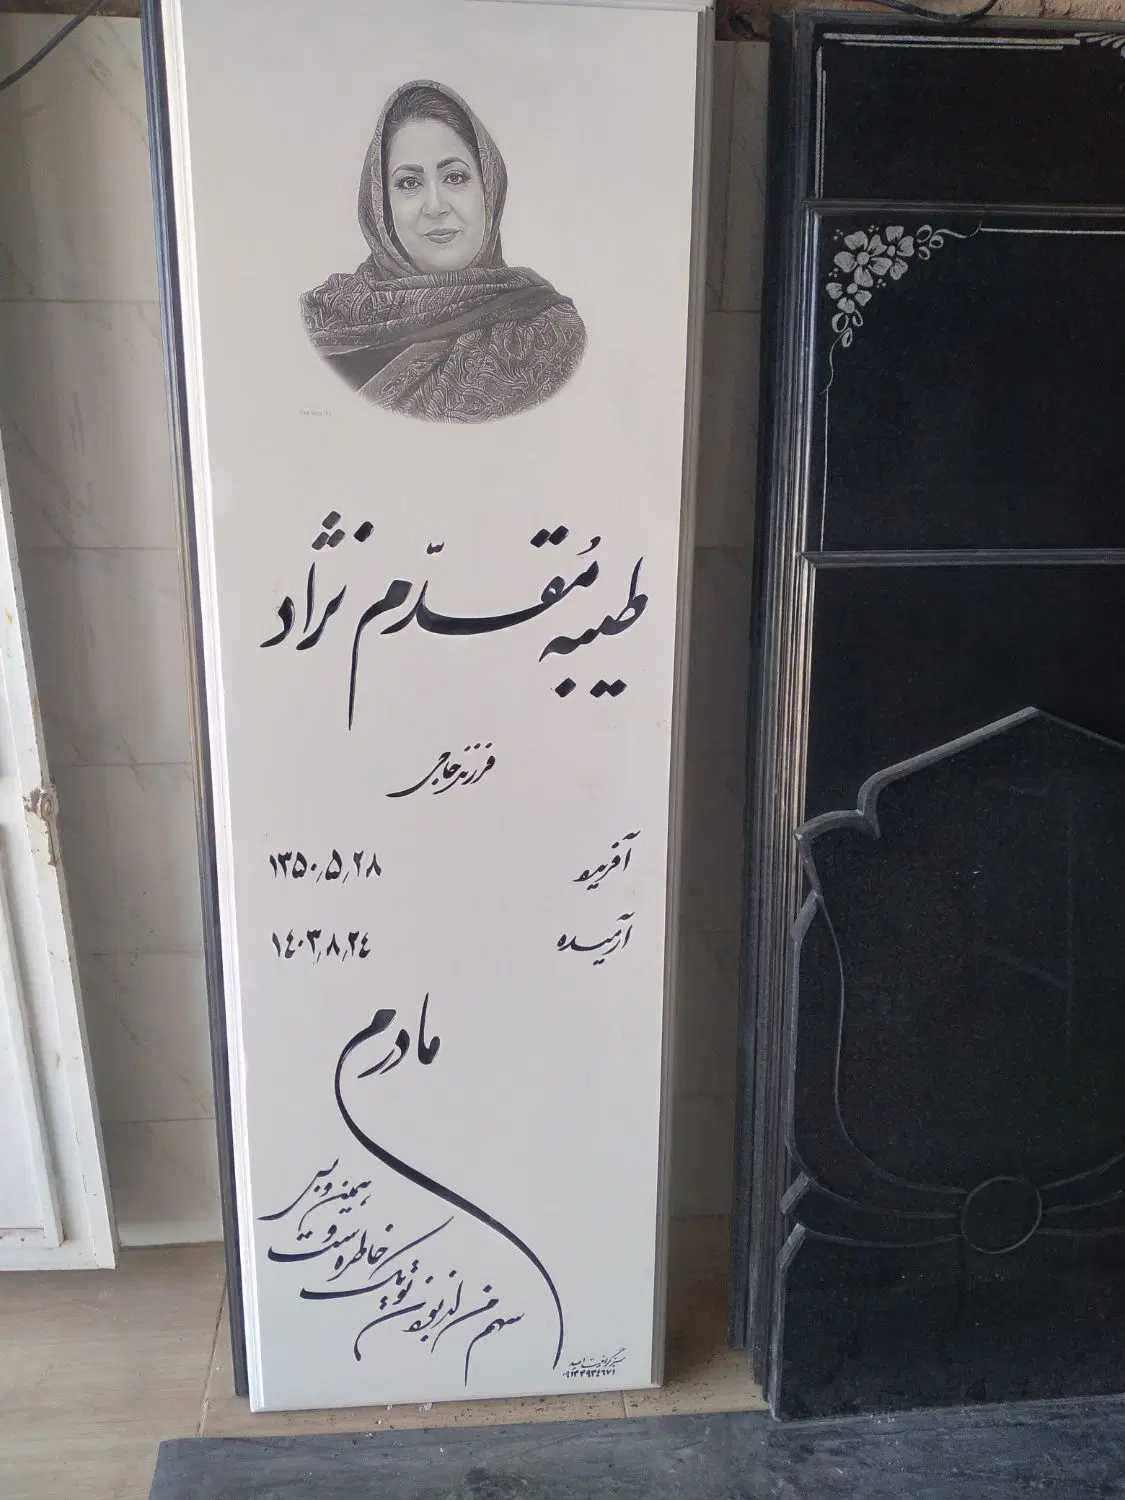 طیبه مُقدّم نژاد
فرزند حاجی
آفریده ۱۳۵۰٫۵٫۲۸
آرمیده ۱٤۰۳٫۸٫۲٤
مادرم
سهم من از بودن تو یک خاطره ست و همین و بس